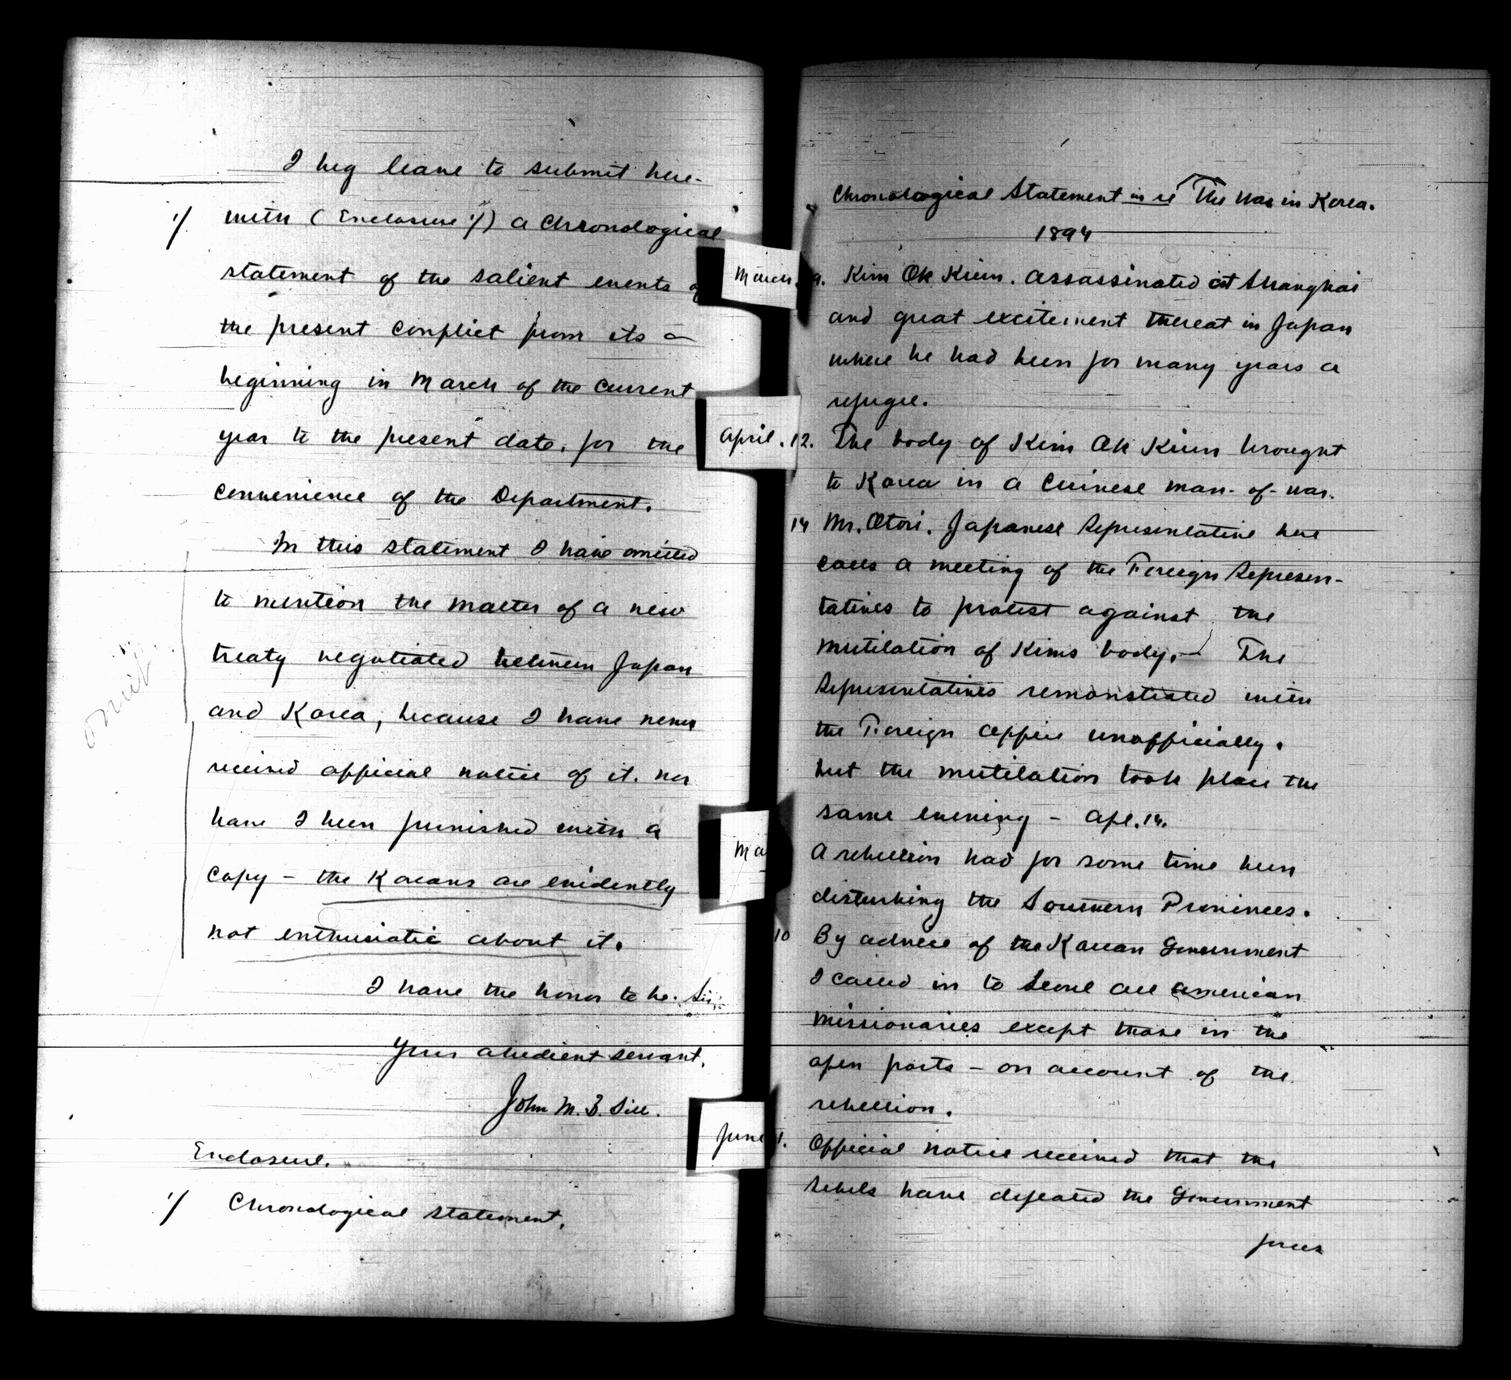 I beg leave to submit here-
1/ with (Enclosure 1/) a Chronological
statement of the salient events of
the present conflict from its –
beginning in March of the current
year to the present date, for the
convenience of the Department.
In this statement I have omitted
to mention the matter of a new
treaty negotiated between Japan
and Korea, because I have never
received official notice of it. nor
have I been furnished with a
copy – the Koreans are evidently
not enthusiatic about it.
omit
I have the honor to be. Sir;
Your obedient servant,
John M. B. Sill.
Enclosure.
1/ Chronological statement.
Chronological Statement in re The War in Korea.
1894
March. 9. Kim Ok Kiun. assassinated at Shanghai
and great excitement thereat in Japan
where he had been for many years a
refugee.
April. 12. The body of Kim Ok Kiun brought
to Korea in a Chinese man-of-war.
14 Mr. Otori. Japanese Representative here
calls a meeting of the Foreign Represen-
tatives to protest against the
mutilation of Kims body, – The
Representatives remonstrated with
the Foreign Office unofficially.
but the mutilation took place the
same evening – Apl. 14.
Ma A rebellion had for some time been
disturbing the Southern Provinces.
10 By advice of the Korean Government
I called in to Seoul all American
missionaries except those in the
open ports – on account of the
rebellion.
June 1. Official notice received that the
rebels have defeated the Government
forces